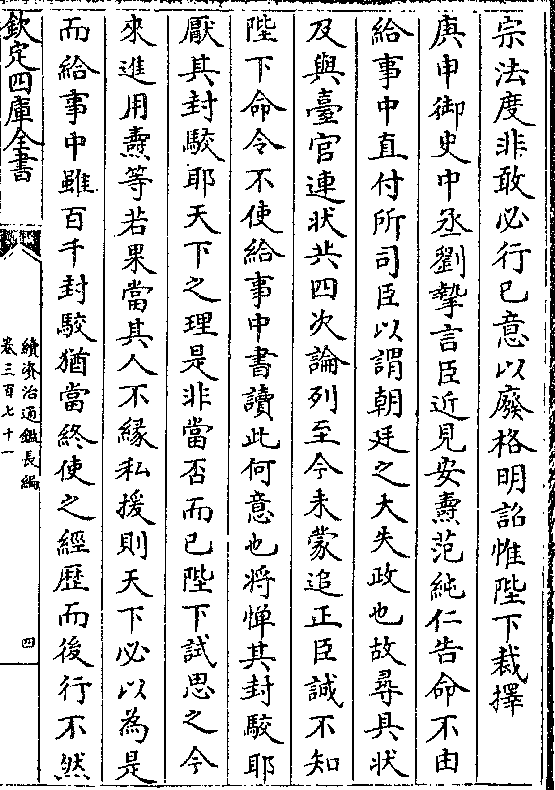 宗法度非敢必行已意以廢格明詔惟陛下裁擇
庚申御史中丞劉摯言臣近見安燾范純仁告命不由
給事中直付所司臣以謂朝廷之大失政也故尋具狀
及與臺官連狀共四次論列至今未蒙追正臣誠不知
陛下命令不使給事中書讀此何意也將憚其封駮耶
厭其封駮耶天下之理是非當否而已陛下試思之今
來進用燾等若果當其人不緣私援則天下必以為是
而給事中雖百千封駮猶當終使之經歷而後行不然
欽定四庫全書
續資治通鑑長編
卷三百七十一
四